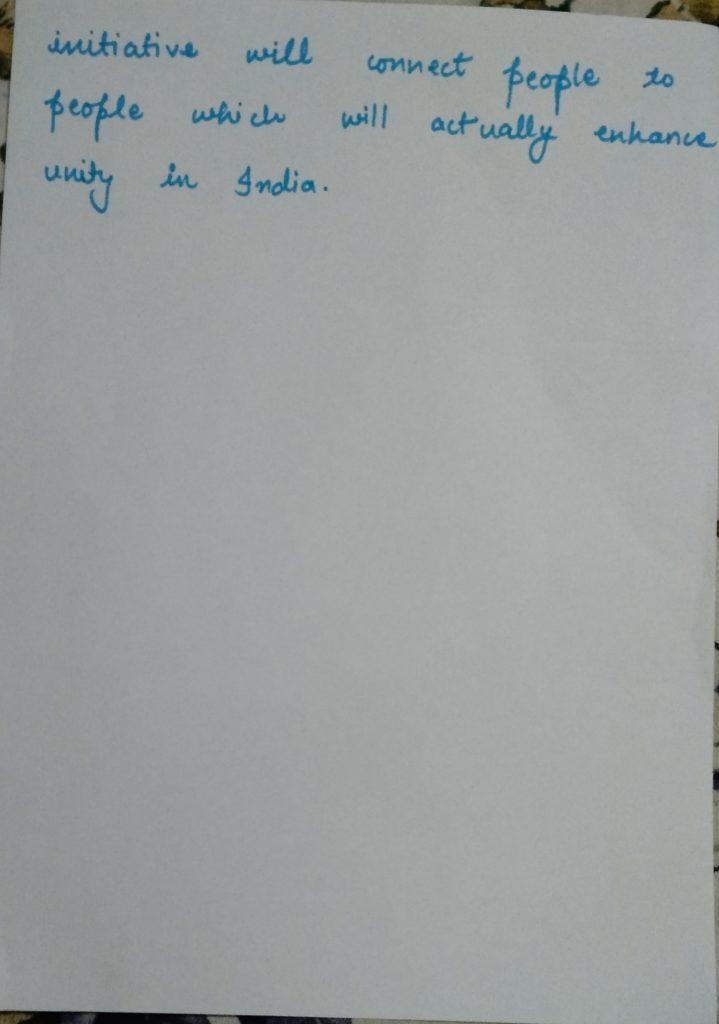 initiative will connect people to
people which will actually enhance
unity in India.